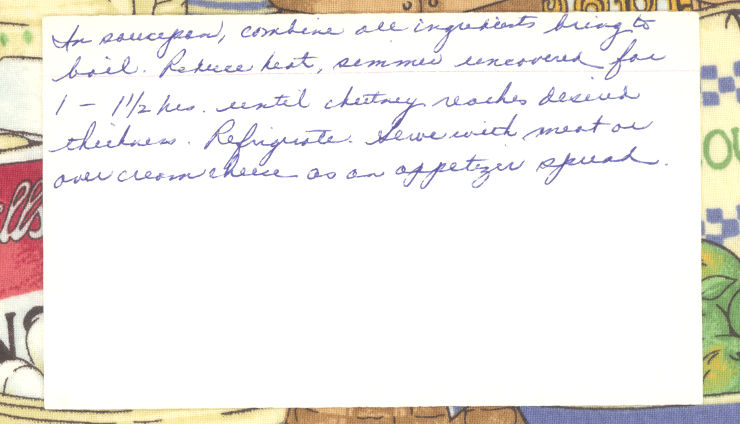 In saucepan, combine all ingredients bring to
boil. Reduce heat, simmer uncovered for
1 - 1 1/2 hrs. until chutney reaches desired
thickness. Refrigerate. Serve with meat or
over cream cheese as an appetizer spread.